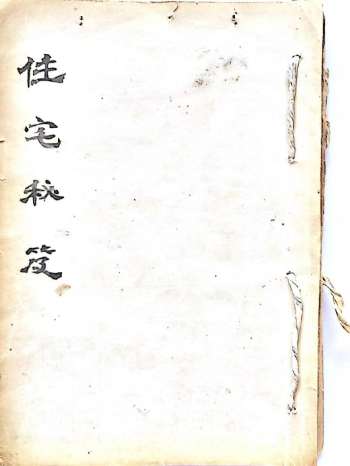 住宅秘笈